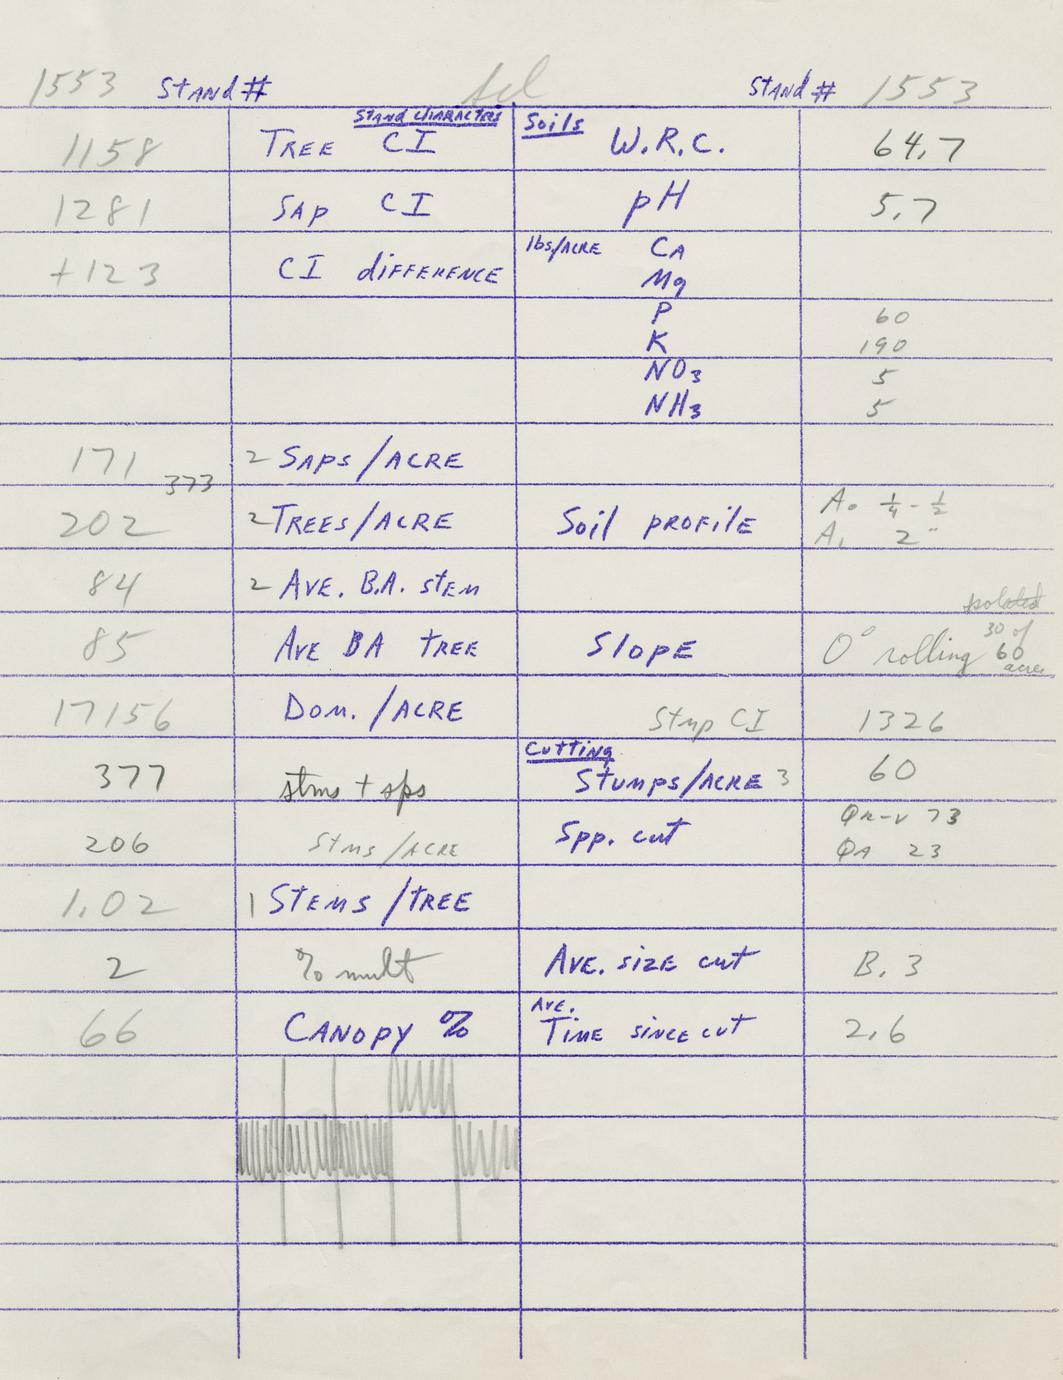 1553 Stand # Sel Stand # 1553
Stand Characters Soils
1158 Tree CI W.R.C. 64.7
1281 Sap CI pH 5.7
+123 CI difference lbs/acre Ca
Mg
P 60
K 190
NO3 5
NH3 5
171 2 Saps/acre
373
202 2 Trees/acre Soil profile A0 1/4 - 1/2
A1 2"
84 2 Ave. B.A. stem
85 Ave BA tree Slope 0° rolling isolated 30 of 60 acres
17156 Dom./acre Stmp CI 1326
Cutting
377 stms + sps Stumps/acre 3 60
206 Stms/acre Spp. cut QR-V 73
QA 23
1.02 1 Stems/tree
2 % mult Ave. size cut B. 3
66 Canopy % Ave. Time since cut 2.6